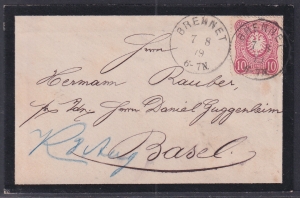 BRENNET
7 8
79
6-7N.
BRENNET
10 10
Herrn
Hermann Rauber,
Herrn Daniel Guggenheim
Basel.